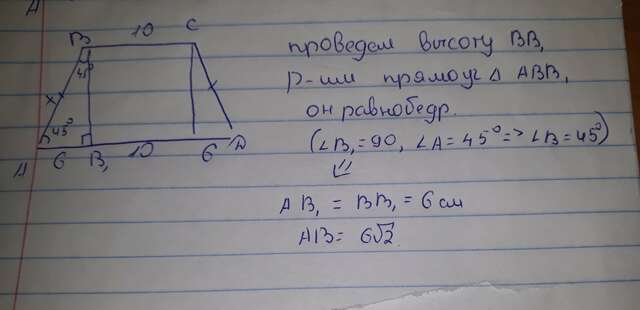 A
B 10 C
45°
x
45°
A 6 B₁ 10 6 D
проведем высоту BB₁
р-им прямоуг Δ ABB₁
он равнобедр.
(∠B₁=90, ∠A=45°=>∠B=45°)
⇓
AB₁ = BB₁ = 6 см
AB= 6√2.